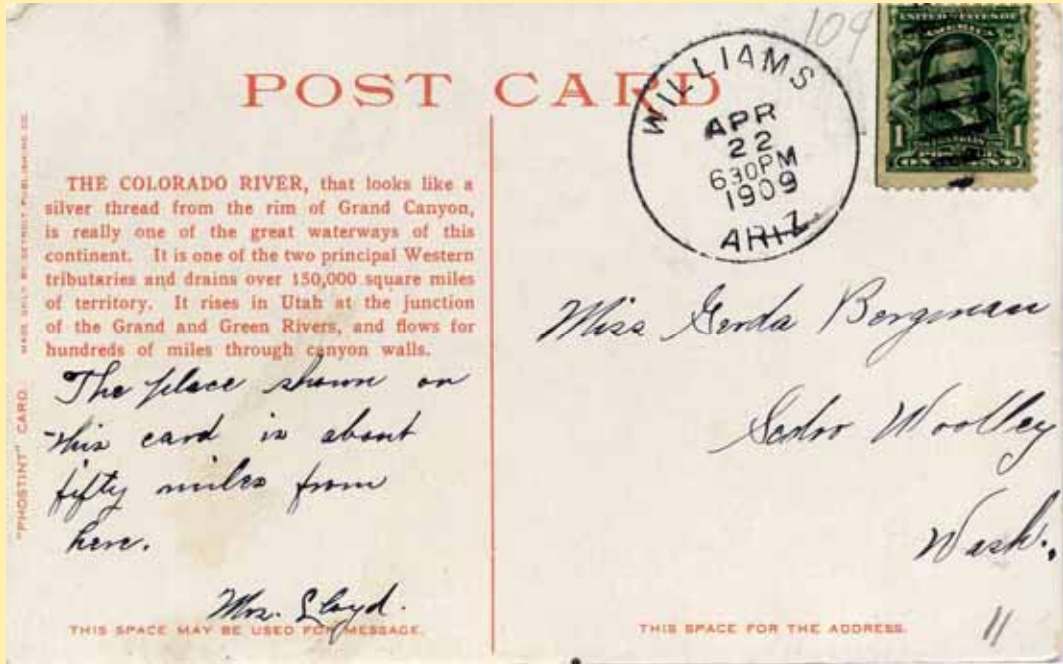 109
POST CARD
WILLIAMS
APR
22
630PM
1909
ARIZ
UNITED STATES OF
AMERICA
1 1
THE COLORADO RIVER, that looks like a
silver thread from the rim of Grand Canyon,
is really one of the great waterways of this
continent. It is one of the two principal Western
tributaries and drains over 150,000 square miles
of territory. It rises in Utah at the junction
of the Grand and Green Rivers, and flows for
hundreds of miles through canyon walls.
The place shown on
this card is about
fifty miles from
here.
Mrs. Lloyd.
THIS SPACE MAY BE USED FOR MESSAGE.
"PHOSTINT" CARD.
MADE ONLY BY DETROIT PUBLISHING CO.
Miss Gerda Bergman
Sedro Woolley
Wash.,
THIS SPACE FOR THE ADDRESS.
11